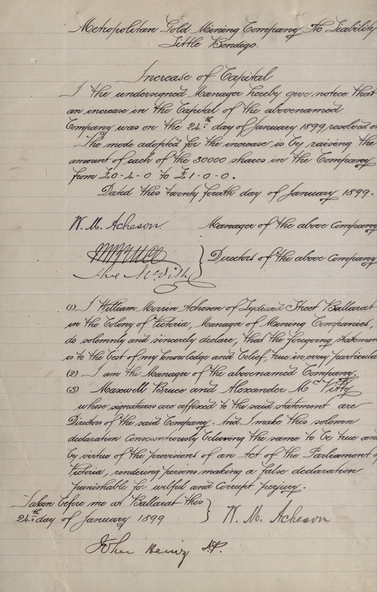 Metropolitan Gold Mining Company No Liability
Little Bendigo.
Increase of Capital
I the undersigned Manager hereby give notice that
an increase in the Capital of the abovenamed
Company was on the 24th day of January 1899 resolved on
The mode adopted for the increase is by raising the
amount of each of the 30000 shares in the Company
from £0-4-0 to £1-0-0.
Dated this twenty fourth day of January 1899.
W. M. Acheson Manager of the above Company
Directors of the above Company
(1) I William Merrin Acheson of Lydiard Street Ballarat
in the Colony of Victoria, Manager of Mining Companies,
do solemnly and sincerely declare, that the foregoing statement
is to the best of my knowledge and belief true in every particular
(2) I am the Manager of the abovenamed Company.
(3) Maxwell Bruce and Alexander
whose signatures are affixed to the said statement are
Directors of the said Company. And I make this solemn
declaration conscientiously believing the same to be true and
by virtue of the provisions of an Act of the Parliament of
Victoria, rendering persons making a false declaration
punishable for wilful and corrupt perjury.
Taken before me at Ballarat this
24th day of January 1899
W. M. Acheson
John Heinz J.P.